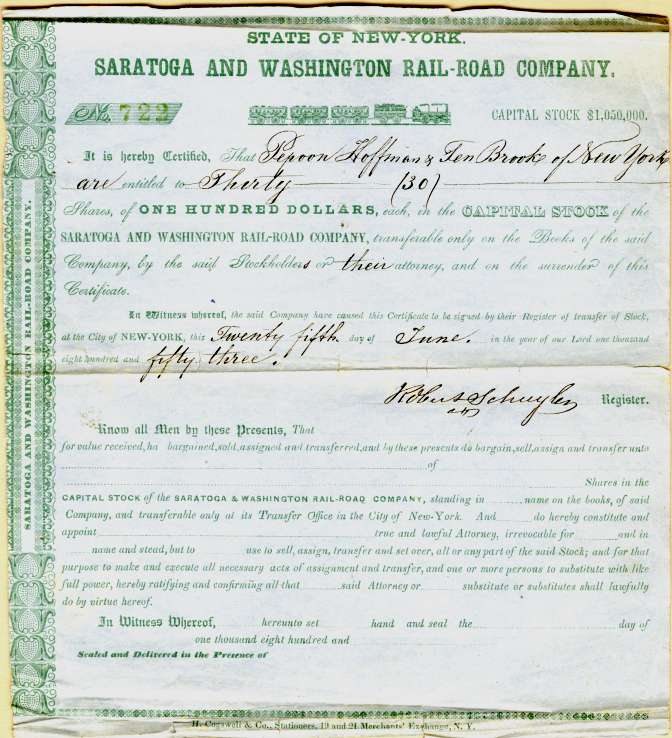 STATE OF NEW-YORK.
SARATOGA AND WASHINGTON RAIL-ROAD COMPANY.
No. 722
CAPITAL STOCK $1,050,000.
It is hereby Certified, That Pepoon Hoffman & Ten Brook of New York
are entitled to Therty (30)
Shares, of ONE HUNDRED DOLLARS, each, in the CAPITAL STOCK of the
SARATOGA AND WASHINGTON RAIL-ROAD COMPANY, transferable only on the Books of the said
Company, by the said Stockholders or their attorney, and on the surrender of this
Certificate.
In Witness whereof, the said Company have caused this Certificate to be signed by their Register of transfer of Stock,
at the City of NEW-YORK, this Twenty fifth day of June. in the year of our Lord one thousand
eight hundred and fifty three.
Robert Schuyler Register.
Know all Men by these Presents, That
for value received, ha bargained, sold, assigned and transferred, and by these presents do bargain, sell, assign and transfer unto
of
Shares in the
CAPITAL STOCK of the SARATOGA & WASHINGTON RAIL-ROAD COMPANY, standing in name on the books, of said
Company, and transferable only at its Transfer Office in the City of New-York. And do hereby constitute and
appoint true and lawful Attorney, irrevocable for and in
name and stead, but to use to sell, assign, transfer and set over, all or any part of the said Stock; and for that
purpose to make and execute all necessary acts of assignment and transfer, and one or more persons to substitute with like
full power, hereby ratifying and confirming all that said Attorney or substitute or substitutes shall lawfully
do by virtue hereof.
In Witness Whereof, hereunto set hand and seal the day of
one thousand eight hundred and
Sealed and Delivered in the Presence of
H. Cogswell & Co., Stationers, 19 and 21 Merchants' Exchange, N. Y.
SARATOGA AND WASHINGTON RAIL-ROAD COMPANY.